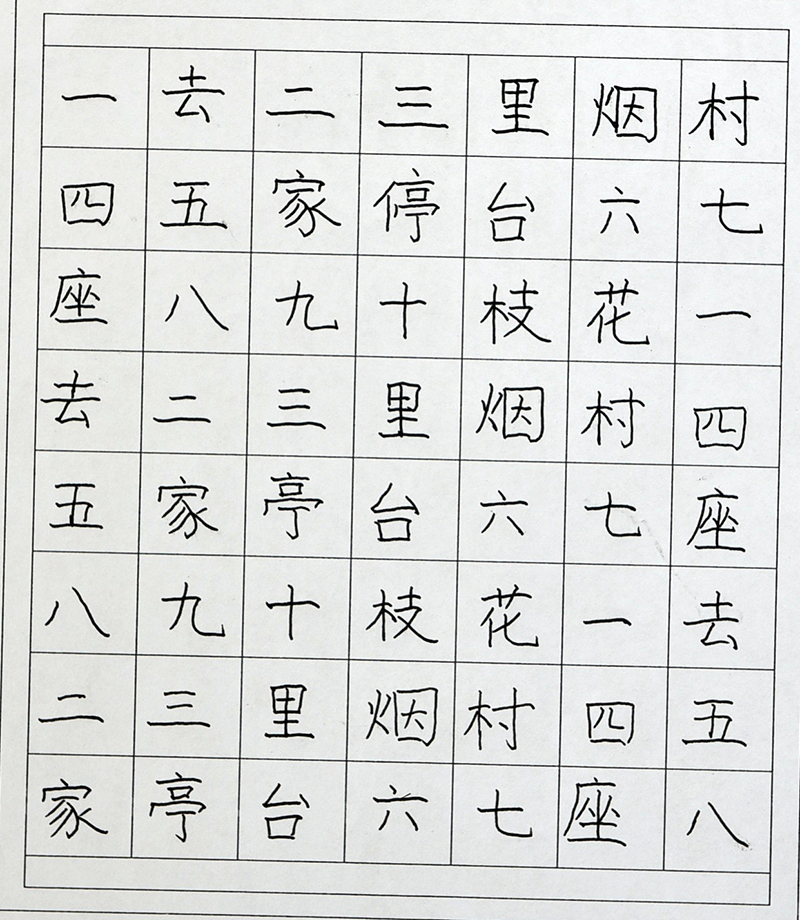 一去二三里烟村
四五家停台六七
座八九十枝花一
去二三里烟村四
五家亭台六七座
八九十枝花一去
二三里烟村四五
家亭台六七座八